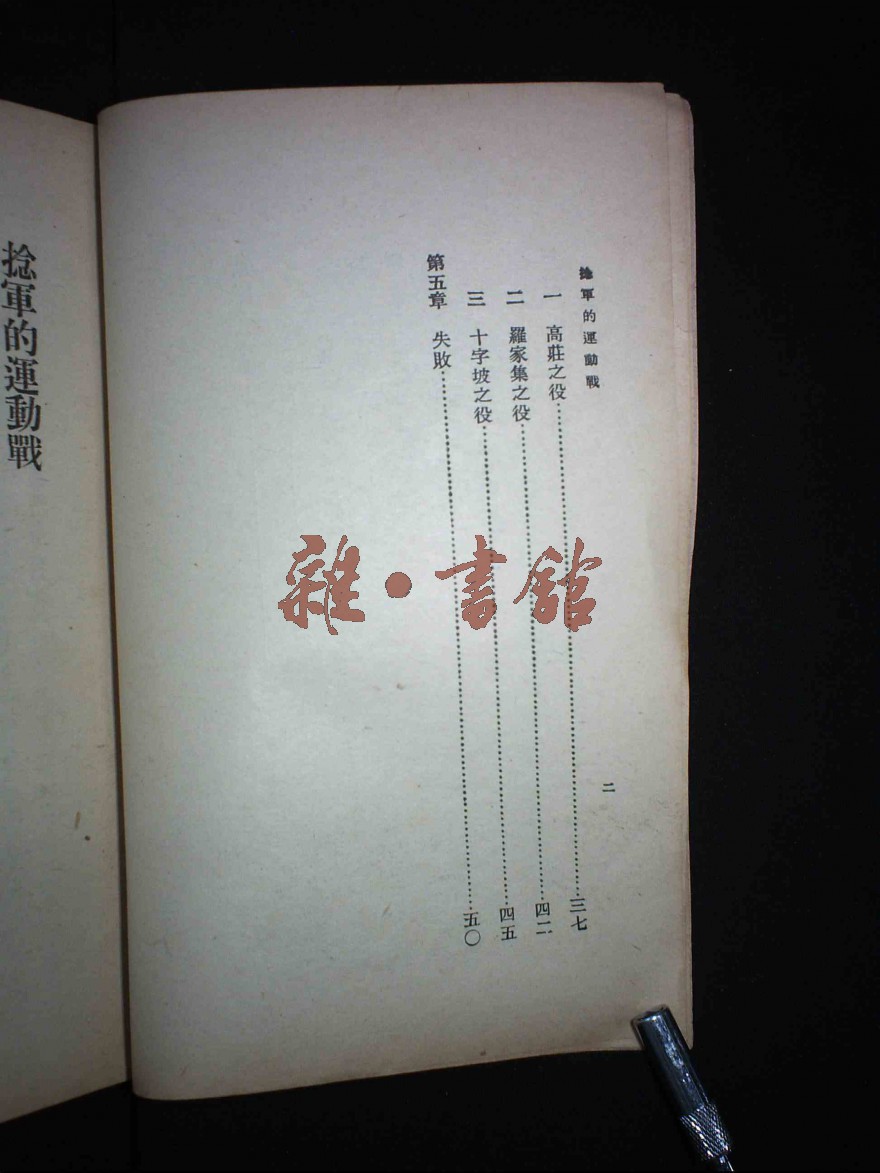 捻軍的運動戰
一 高莊之役……三七
二 羅家集之役……四二
三 十字坡之役……四五
第五章 失敗……五〇
二
捻軍的運動戰
雜·書館